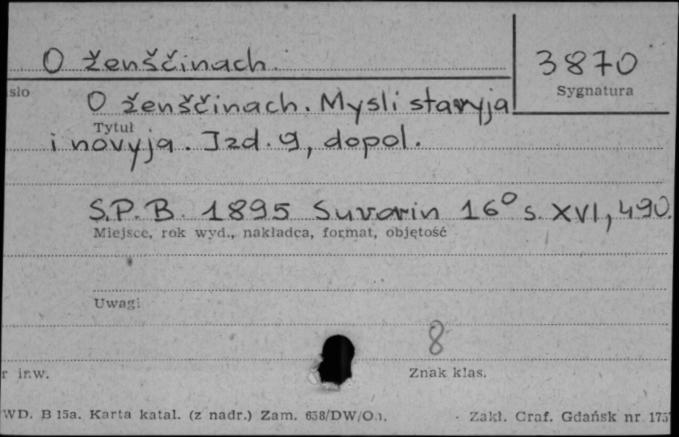 O ženščinach.
3870
sło
Sygnatura
O ženščinach. Mysli staryja
Tytuł
i novyja. Izd. 9, dopol.
S.P.B. 1895 Suvorin 16° s. XVI, 490.
Miejsce, rok wyd., nakładca, format, objętość
Uwagi
8
r inw.
Znak klas.
WD. B 15a. Karta katal. (z nadr.) Zam. 658/DW/O
Zakł. Graf. Gdańsk nr 175